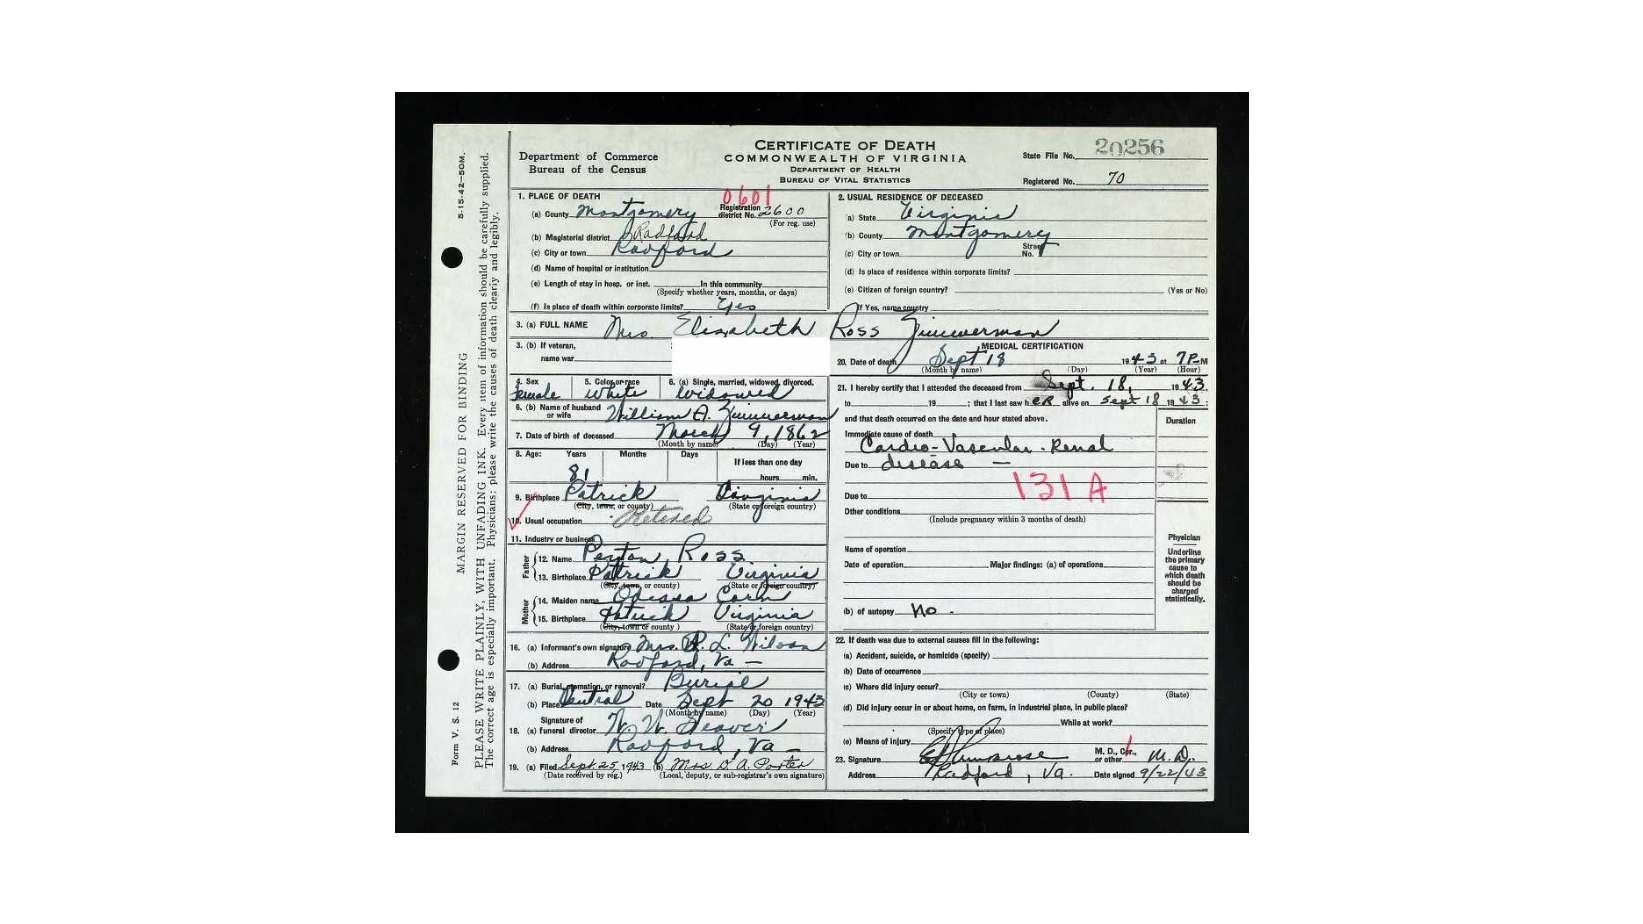 CERTIFICATE OF DEATH
COMMONWEALTH OF VIRGINIA
DEPARTMENT OF HEALTH
BUREAU OF VITAL STATISTICS
Department of Commerce
Bureau of the Census
State File No. 20256
Registered No. 70
5-15-42—50M.
MARGIN RESERVED FOR BINDING
PLEASE WRITE PLAINLY, WITH UNFADING INK. Every item of information should be carefully supplied.
The correct age is especially important. Physicians: please write the causes of death clearly and legibly.
Form V. S. 12
1. PLACE OF DEATH
0601
(a) County Montgomery Registration district No. 2600
(For reg. use)
(b) Magisterial district Radford
(c) City or town Radford
(d) Name of hospital or institution
(e) Length of stay in hosp. or inst. In this community
(Specify whether years, months, or days)
(f) Is place of death within corporate limits? Yes
2. USUAL RESIDENCE OF DECEASED
(a) State Virginia
(b) County Montgomery
(c) City or town Street No.
(d) Is place of residence within corporate limits?
(e) Citizen of foreign country? (Yes or No)
If Yes, name country
3. (a) FULL NAME Mrs. Elizabeth Ross Zimmerman
3. (b) If veteran,
name war
4. Sex 5. Color or race 6. (a) Single, married, widowed, divorced.
female white widowed
6. (b) Name of husband or wife William A. Zimmerman
7. Date of birth of deceased March 9, 1862
(Month by name) (Day) (Year)
8. Age: Years Months Days If less than one day
81 hours min.
9. Birthplace Patrick Virginia
(City, town, or county) (State or foreign country)
10. Usual occupation Retired
11. Industry or business
Father
12. Name Penton Ross
13. Birthplace Patrick Virginia
(City, town, or county) (State or foreign country)
Mother
14. Maiden name Odessa Corn
15. Birthplace Patrick Virginia
(City, town or county) (State or foreign country)
16. (a) Informant's own signature Mrs. R. L. Wilson
(b) Address Radford, Va —
17. (a) Burial, cremation, or removal? Burial
(b) Place Central Date Sept 20 1943
(Month by name) (Day) (Year)
18. (a) Signature of funeral director W. W. Seaver
(b) Address Radford, Va —
19. (a) Filed Sept. 25, 1943 (b) Mrs D. A. Porter
(Date received by reg.) (Local, deputy, or sub-registrar's own signature)
MEDICAL CERTIFICATION
20. Date of death Sept 18 1943 at 7 P.M
(Month by name) (Day) (Year) (Hour)
21. I hereby certify that I attended the deceased from Sept. 18, 1943
to 19 ; that I last saw her alive on Sept 18 1943;
and that death occurred on the date and hour stated above.
Duration
Immediate cause of death
Cardio-Vascular-Renal
Due to disease —
131 A
Due to
Other conditions
(Include pregnancy within 3 months of death)
Name of operation
Date of operation Major findings: (a) of operations
(b) of autopsy No.
Physician
Underline the primary cause to which death should be charged statistically.
22. If death was due to external causes fill in the following:
(a) Accident, suicide, or homicide (specify)
(b) Date of occurrence
(c) Where did injury occur?
(City or town) (County) (State)
(d) Did injury occur in or about home, on farm, in industrial place, in public place?
While at work?
(Specify type of place)
(e) Means of injury
23. Signature M. D., Cor., or other M.D.
Address Radford, Va. Date signed 9/22/43